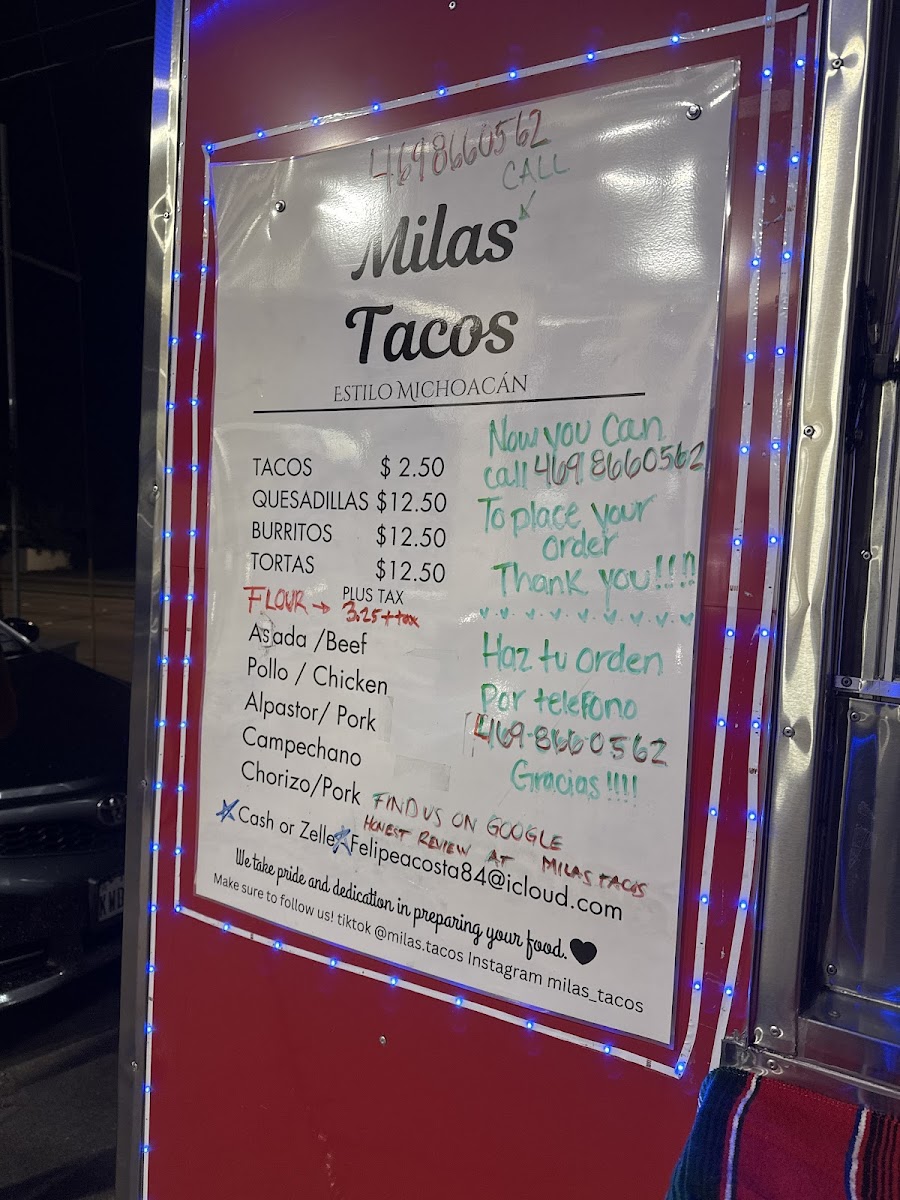 4698660562
CALL
Milas
Tacos
ESTILO MICHOACÁN
TACOS $ 2.50
QUESADILLAS $12.50
BURRITOS $12.50
TORTAS $12.50
PLUS TAX
FLOUR → 3.25+tax
Asada /Beef
Pollo / Chicken
Alpastor/ Pork
Campechano
Chorizo/Pork
Now you Can
call 469 8660562
To place your
order
Thank you!!!!
Haz tu orden
Por telefono
469-866-0562
Gracias!!!!
FIND US ON GOOGLE
HONEST REVIEW AT MILAS TACOS
Cash or Zelle Felipeacosta84@icloud.com
We take pride and dedication in preparing your food.
Make sure to follow us! tiktok @milas.tacos Instagram milas_tacos